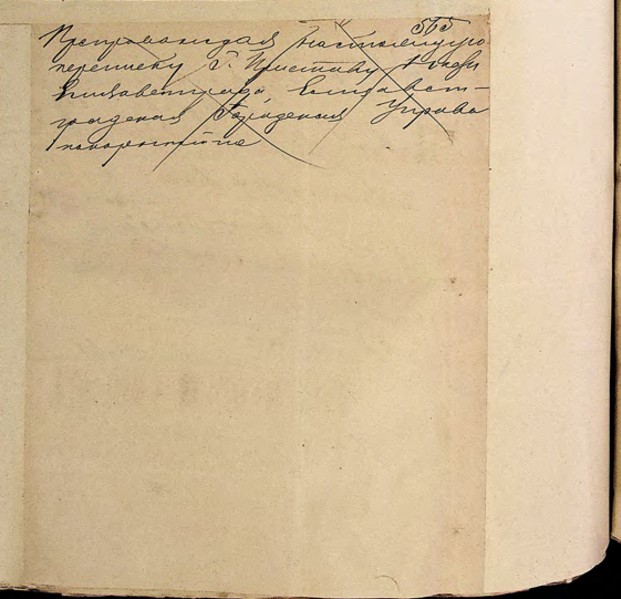 565
Препровождая настоящую
переписку Г. Приставу 1 части
Елисаветграда, Елисавет-
градская Городская Управа
покорнейше